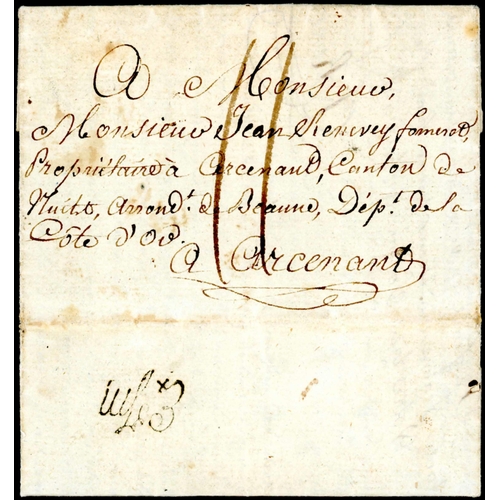 A Monsieur,
Monsieur Jean Renevey fomerod,
Propriétaire à Arcenant, Canton de
Nuits, Arrond.t de Beaune, Dép.t de la
Côte d'Or.
A Arcenant
11